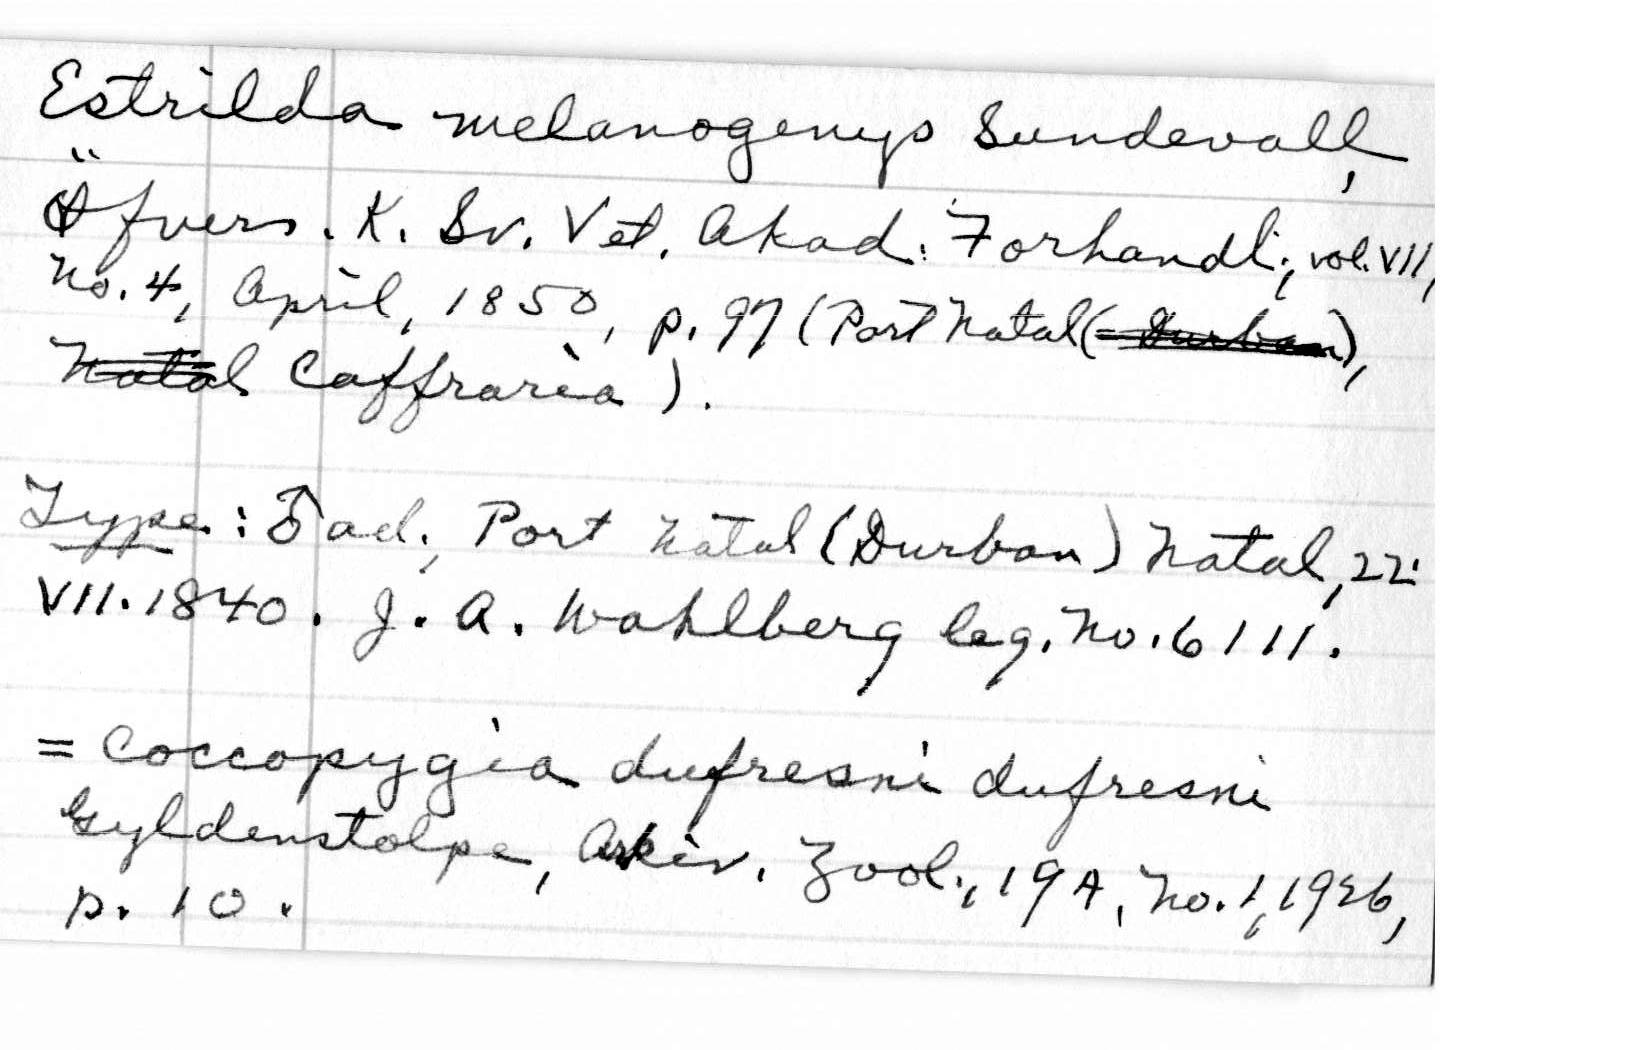 Estrilda melanogenys Sundevall,
Öfvers. K. Sv. Vet. Akad. Forhandl., vol. VII,
No. 4, April, 1850, p. 97 (Port Natal (= Durban),
Natal Caffraria).
Type: ♂ ad., Port Natal (Durban) Natal, 22.
VII. 1840. J. A. Wahlberg leg. No. 6111.
= Coccopygia dufresni dufresni
Gyldenstolpe, Arkiv. Zool., 19A, No. 1, 1926,
p. 10.